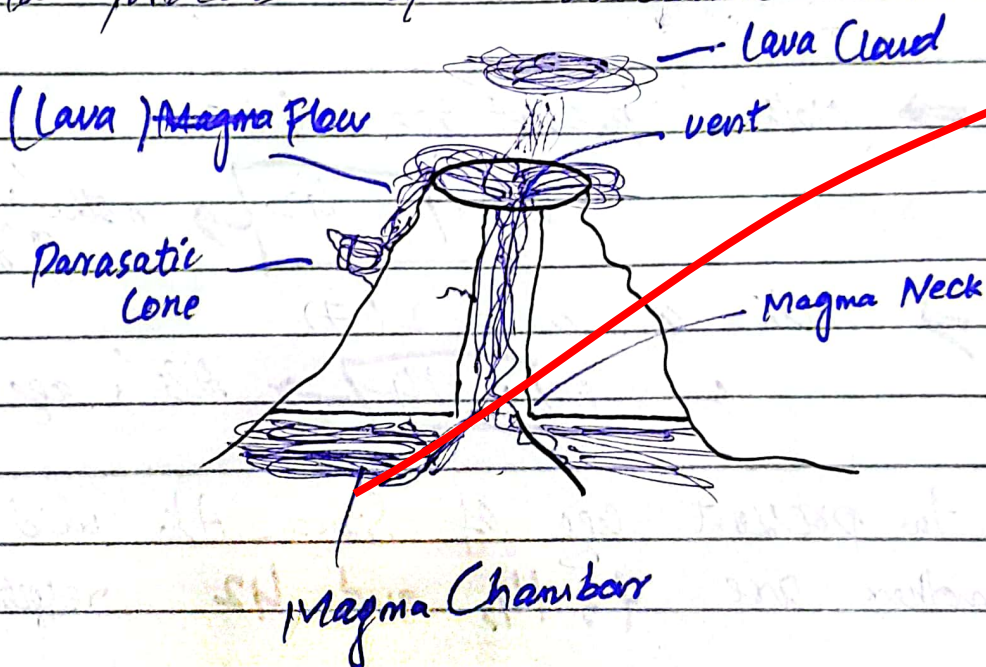 Lava Cloud
(Lava) Magma Flow
vent
Parasatic
Cone
Magma Neck
Magma Chambar